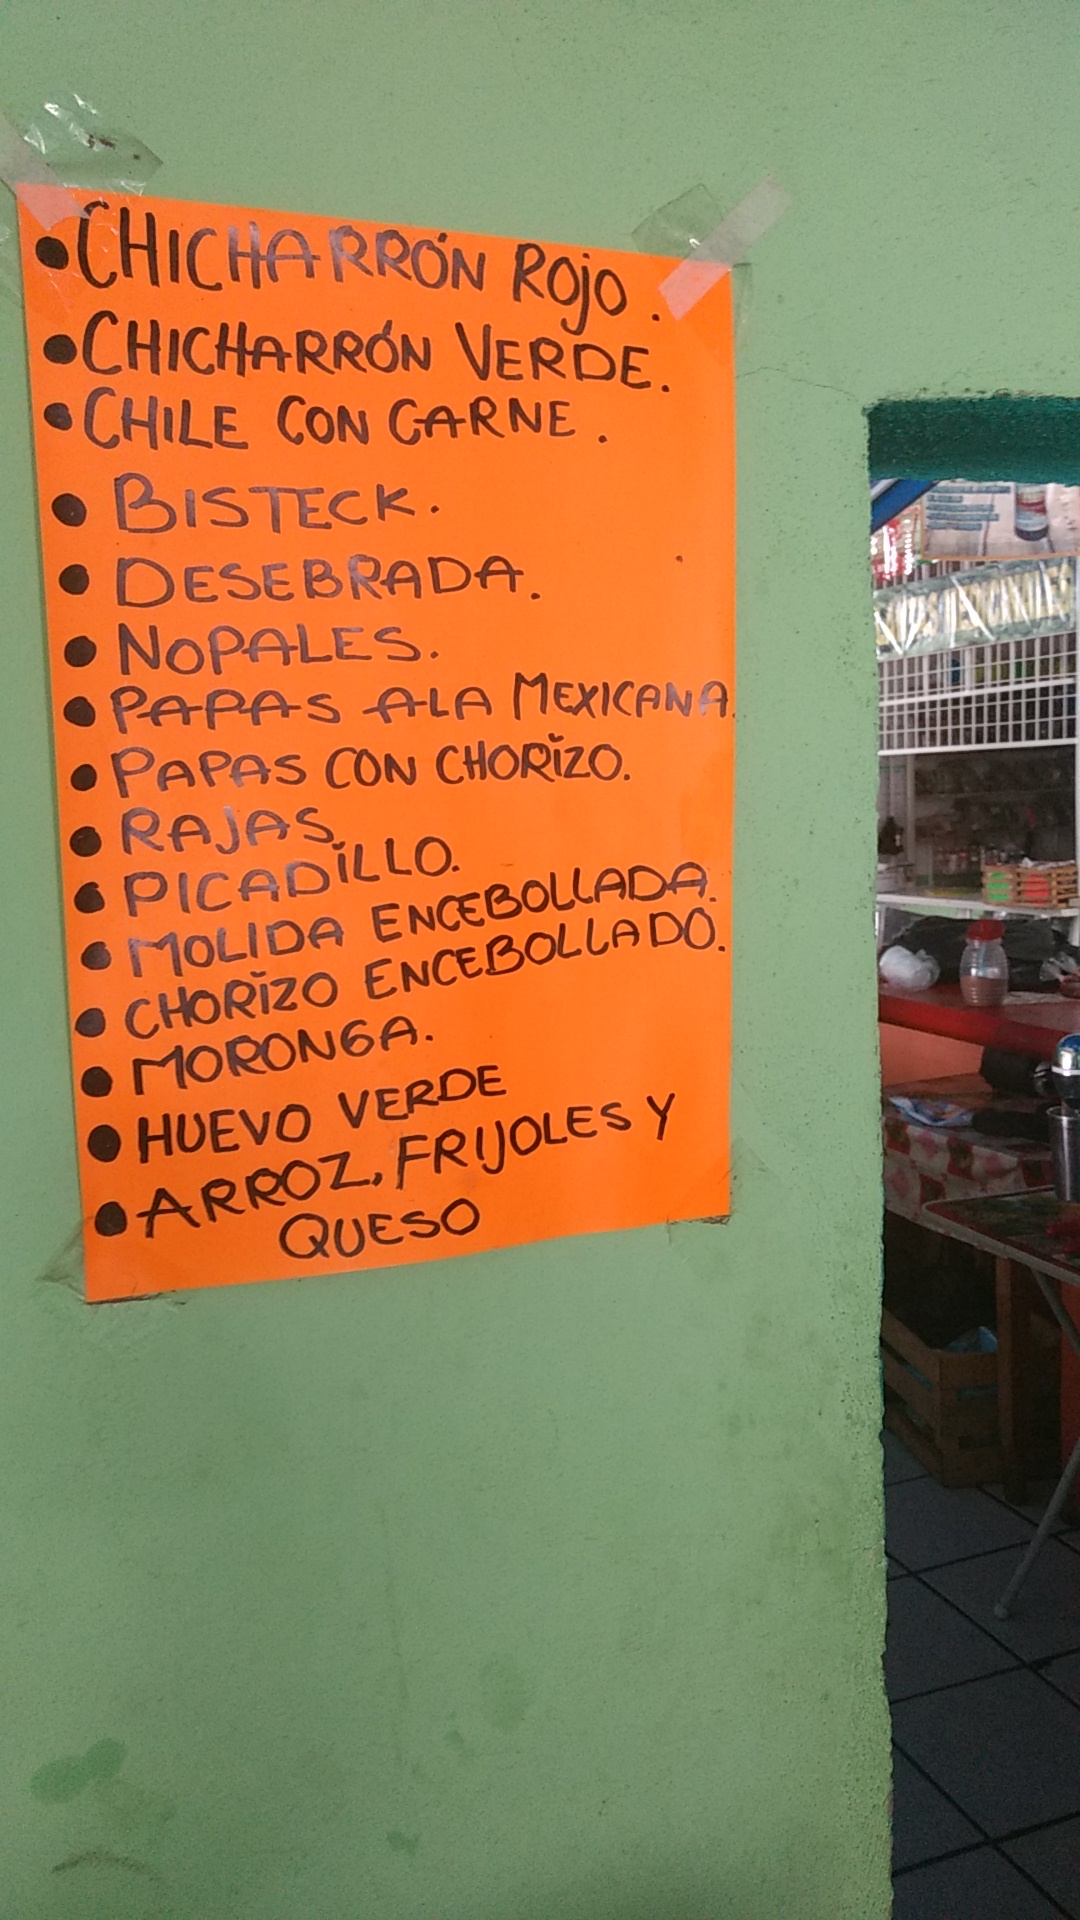 • CHICHARRÓN ROJO.
• CHICHARRÓN VERDE.
• CHILE CON CARNE.
• BISTECK.
• DESEBRADA.
• NOPALES.
• PAPAS ALA MEXICANA.
• PAPAS CON CHORIZO.
• RAJAS.
• PICADILLO.
• MOLIDA ENCEBOLLADA.
• CHORIZO ENCEBOLLADO.
• MORONGA.
• HUEVO VERDE
• ARROZ, FRIJOLES Y
QUESO